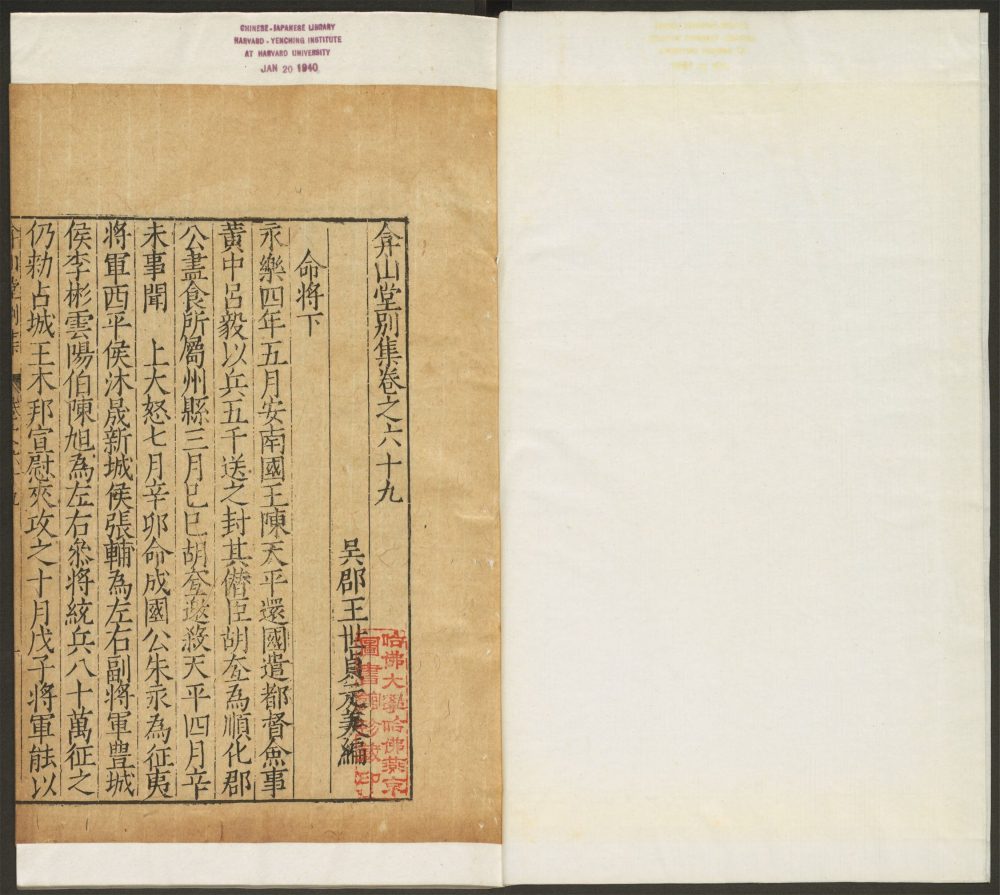 CHINESE-JAPANESE LIBRARY
HARVARD-YENCHING INSTITUTE
AT HARVARD UNIVERSITY
JAN 20 1940
弇山堂别集卷之六十九
吳郡王世貞元美編
哈佛大學哈佛燕京
圖書館珍藏印
命將下
永樂四年五月安南國王陳天平還國遣都督僉事
黃中呂毅以兵五千送之封其僭臣胡𡗨為順化郡
公盡食所屬州縣三月己巳胡𡗨邀殺天平四月辛
未事聞 上大怒七月辛卯命成國公朱永為征夷
將軍西平侯沐晟新城侯張輔為左右副將軍豊城
侯李彬雲陽伯陳旭為左右叅將統兵八十萬征之
仍勑占城王木邦宣慰夾攻之十月戊子將軍䏻以